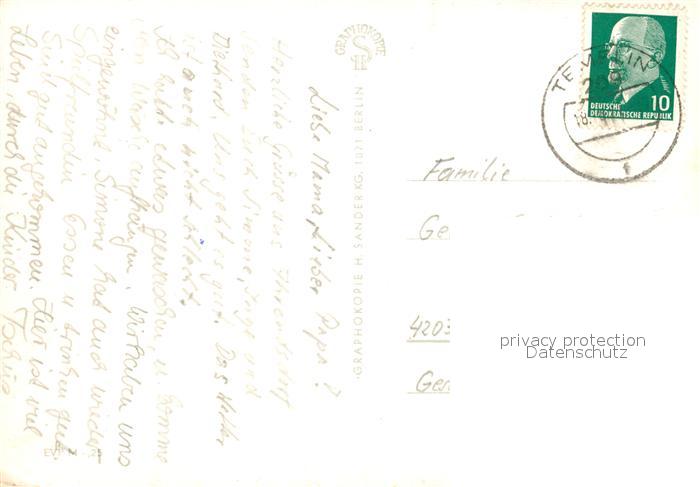 Liebe Mama, Lieber Papa!
Herzliche Grüsse aus Ahrenshoop
senden Euch Simone, Inge und
Uns geht es gut. Das Wetter
ist auch nicht schlecht.
Ich habe etwas gewaschen u. komme
Wäsche aufhängen. Wir haben uns
eingewöhnt. Simone hat auch wieder
Essen u. trinken gut.
Sind gut angekommen. Hier ist viel
Leben durch die Kinder. Tschüs
GRAPHOKOPIE
GRAPHOKOPIE H. SANDER KG, 1071 BERLIN
EVP
DEUTSCHE
DEMOKRATISCHE REPUBLIK
10
Familie
Ge
4203
Ge
privacy protection
Datenschutz